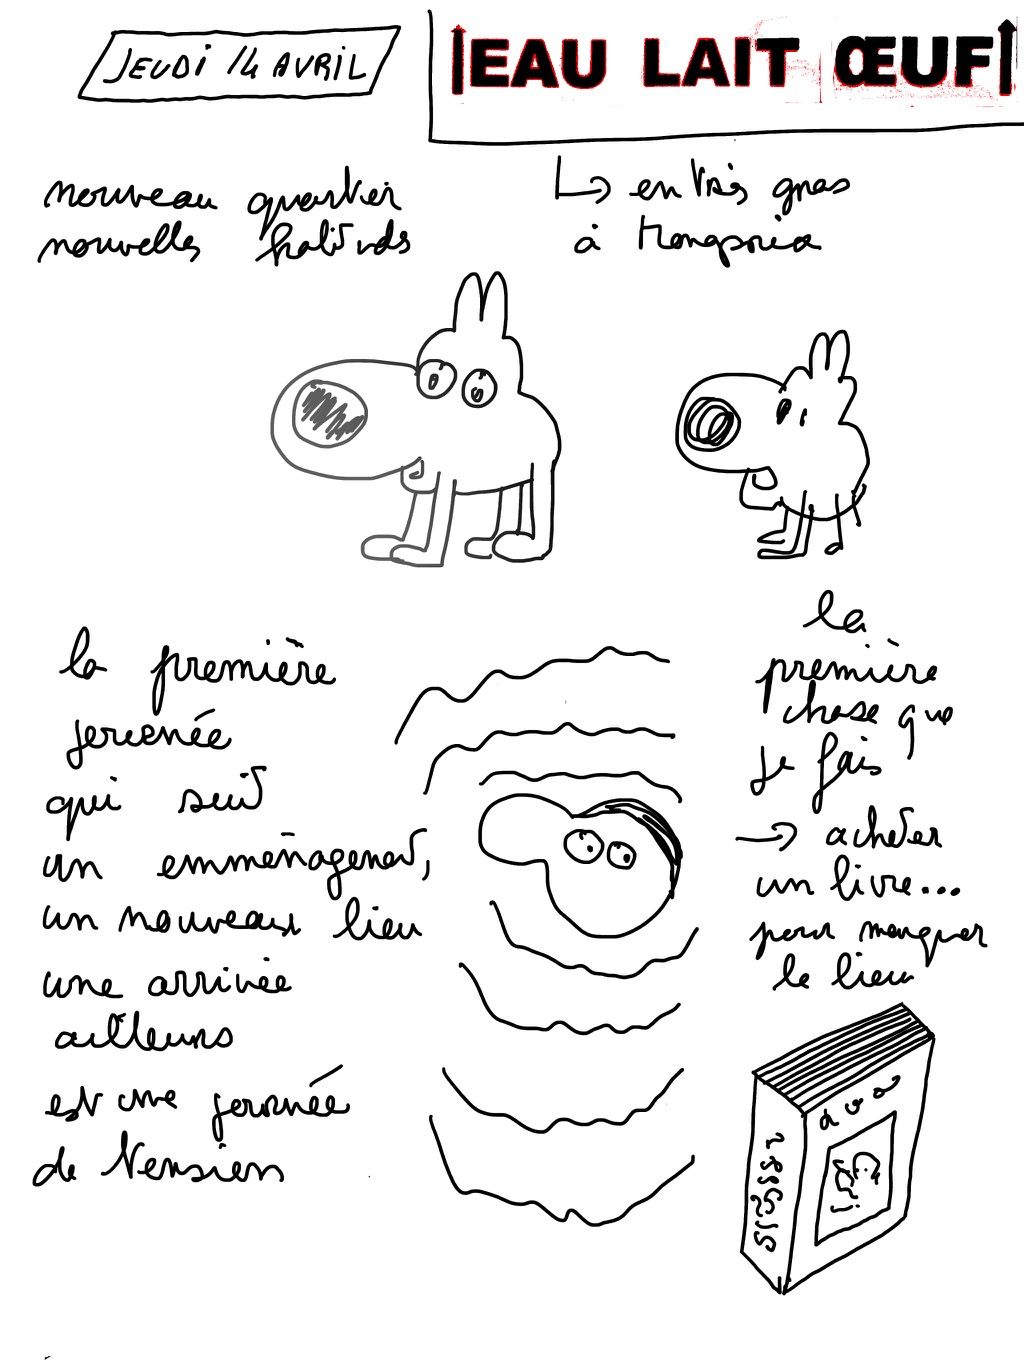 JEUDI 14 AVRIL
EAU LAIT ŒUF
nouveau quartier
nouvelles
en très gros
à
la première
journée
qui suit
un emménagement,
un nouveau lieu
une arrivée
ailleurs
est une journée
de tension
la
première
chose que
je fais
→ acheter
un livre...
pour marquer
le lieu